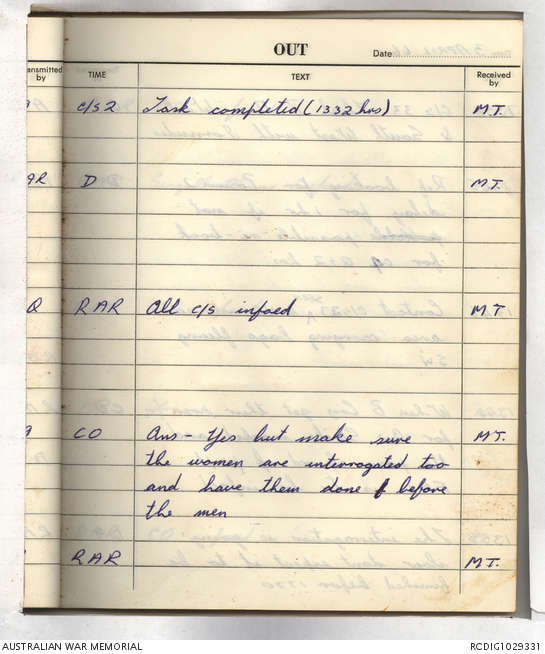 OUT
Date
ansmitted by
TIME
TEXT
Received by
C/S 2 Task completed (1332 hrs) M.T.
AR D M.T.
Q RAR All c/s infoed M.T.
CO Ans - Yes but make sure M.T.
the women are interrogated too
and have them done before
the men
RAR M.T.
AUSTRALIAN WAR MEMORIAL
RCDIG1029331